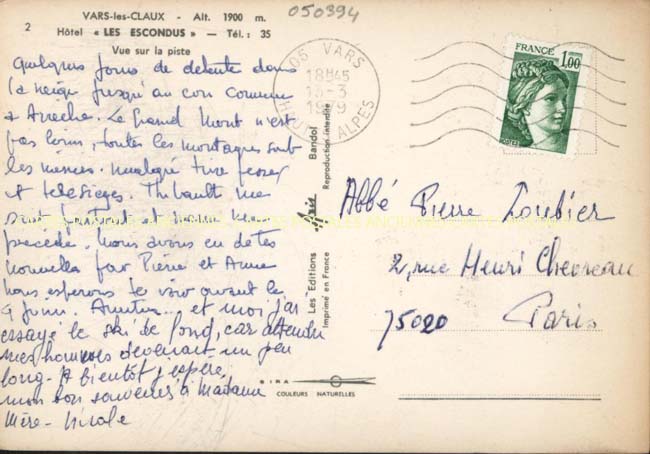 VARS-les-CLAUX - Alt. 1900 m.
2
Hôtel « LES ESCONDUS » — Tél. : 35
Vue sur la piste
050394
05 VARS
18H45
13-3
1979
HAUTES ALPES
FRANCE
1,00
POSTES
Quelques jours de détente dans
la neige jusqu'au cou comme
à Areche. Le Grand Mont n'est
pas loin, toutes les montagnes sont
les mêmes. malgré tire fesses
et télésièges. Thibault me
suit partout et même me
précède. Nous avons eu de tes
nouvelles par Pierre et Anne
nous espérons te voir avant le
9 Juin. et moi j'ai
essayé le ski de fond, car attendre
mes hommes devenait un peu
long. A bientôt j'espère,
mon bon souvenir à Madame
Mère - Nicole
Les Editions Mar Bandol
Imprimé en France Reproduction interdite
SIRA
COULEURS NATURELLES
Abbé Pierre Loubier
2, rue Henri Chevreau
75020 Paris